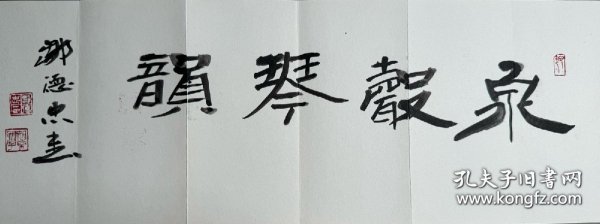 泉聲琴韻
德忠書
孔夫子旧书网
kongfz.com